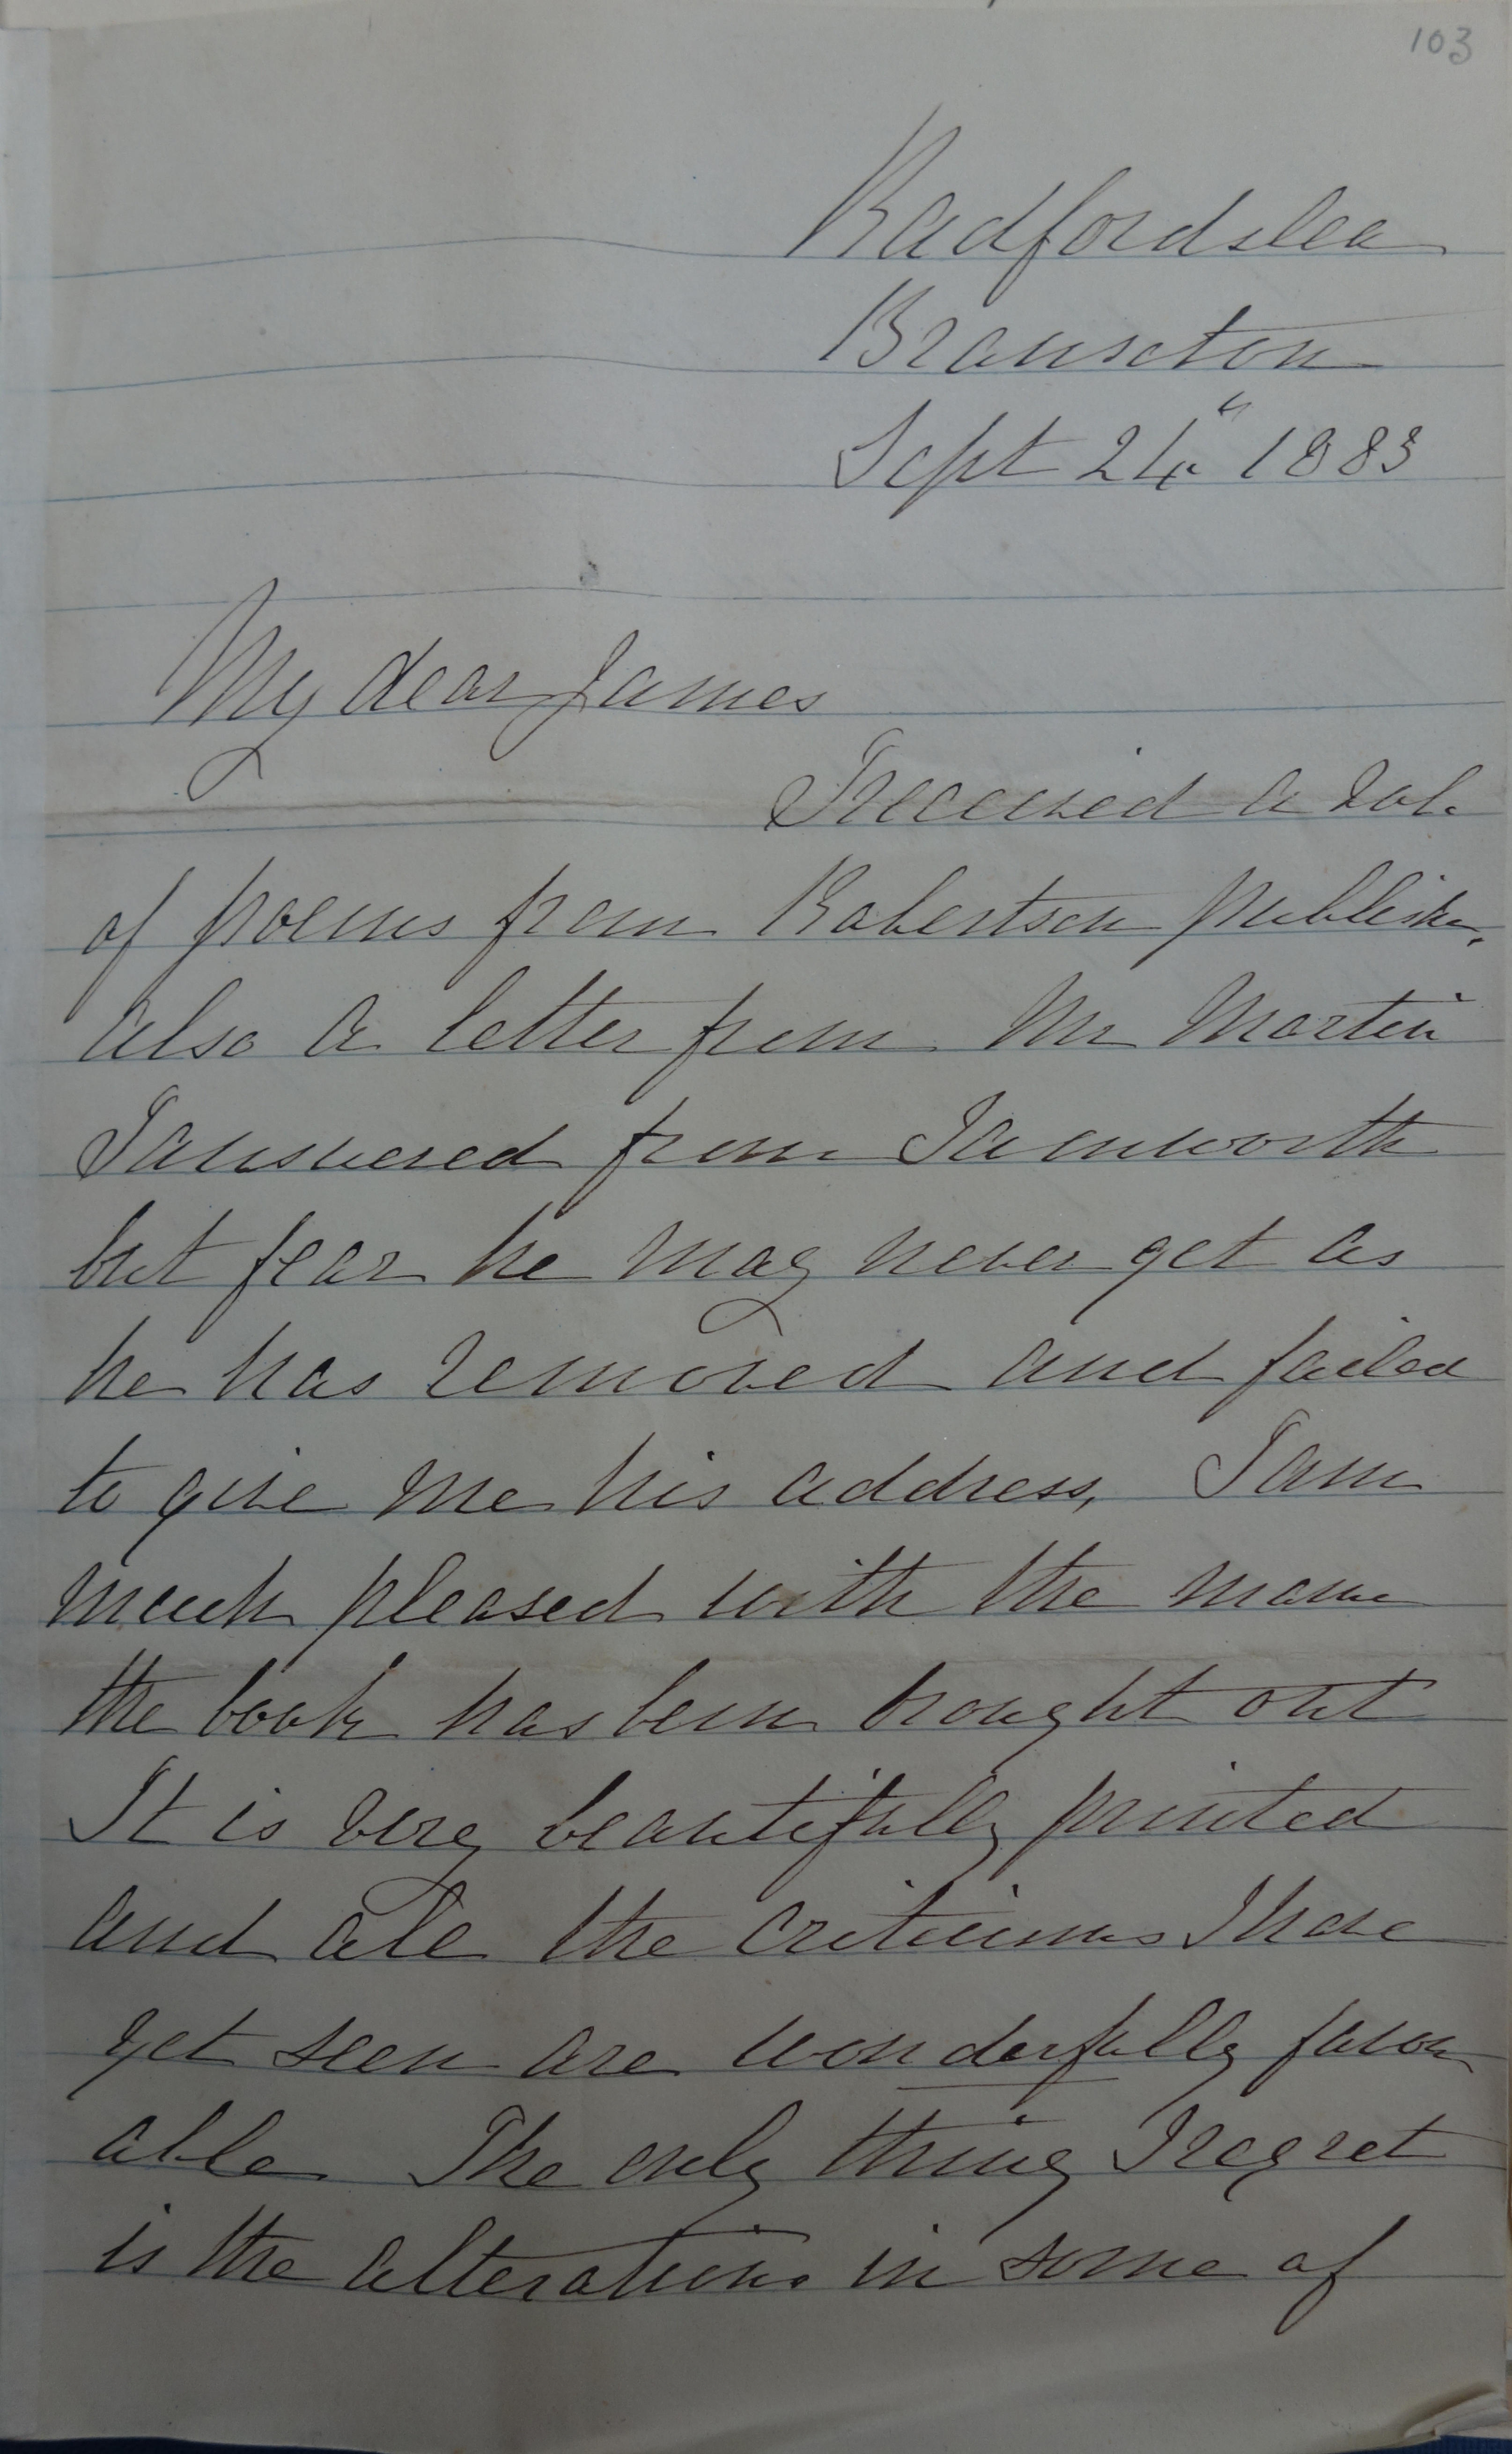 103
Radfordslea
Branxton
Sept 24" 1883
My dear James
I received a vol.
of poems from Robertson publisher,
also a letter from Mr Martin
I answered from Tamworth
but fear he may never get as
he has removed and failed
to give me his address, I am
much pleased with the
the book has been brought out
It is very beautifully printed
and all the criticisms I have
yet seen are wonderfully favour
able The only thing I regret
is the alterations in some of